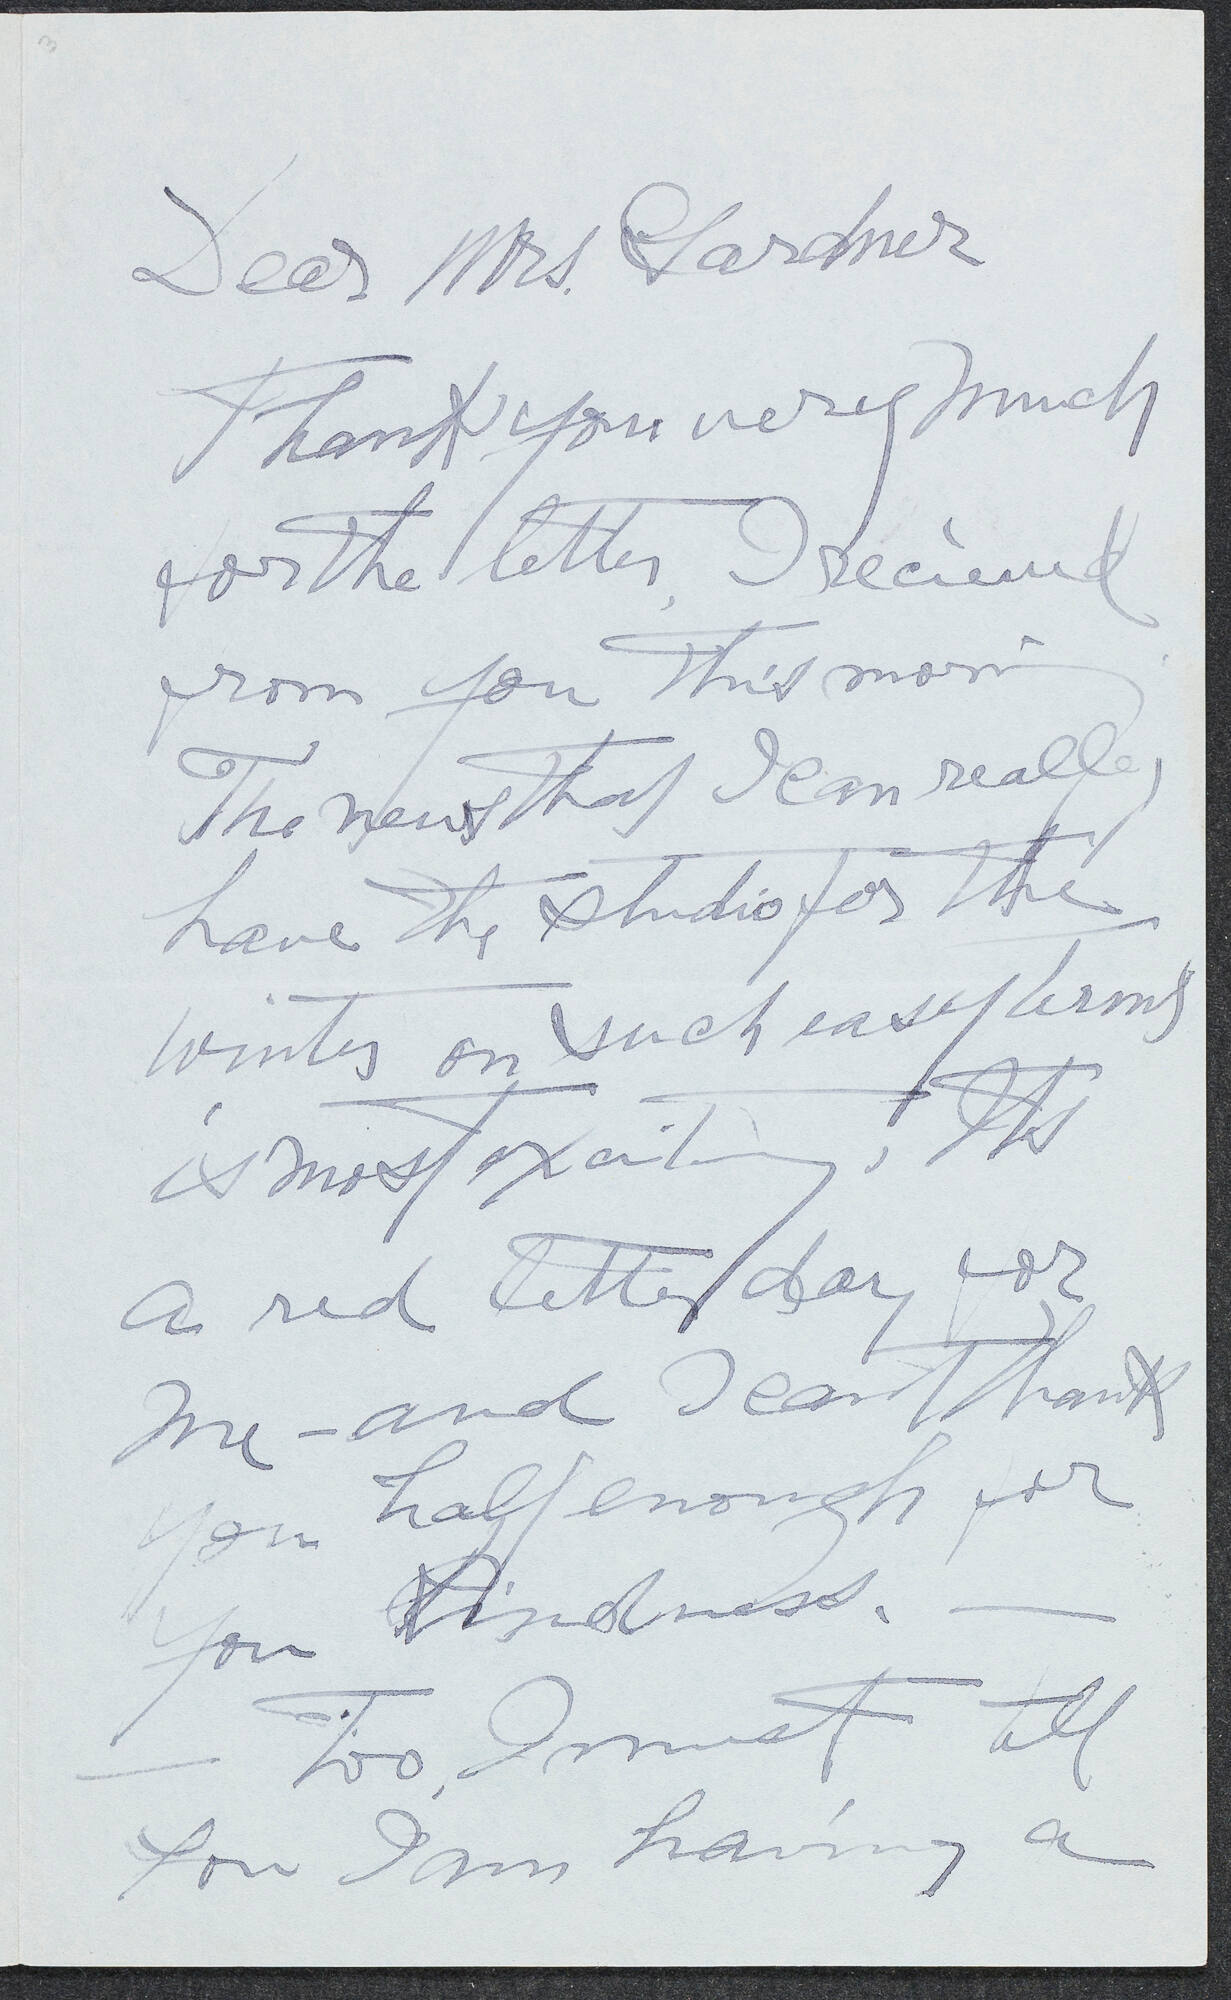 3
Dear Mrs. Gardner
Thank you very much
for the letter, I recieved
from you this morning
The news that I can really,
have the studio for the
winter on such easy terms
is most exciting; Its
a red letter day for
me - and I can't thank
you half enough for
you kindness. —
— Too, I must tell
you I am having a